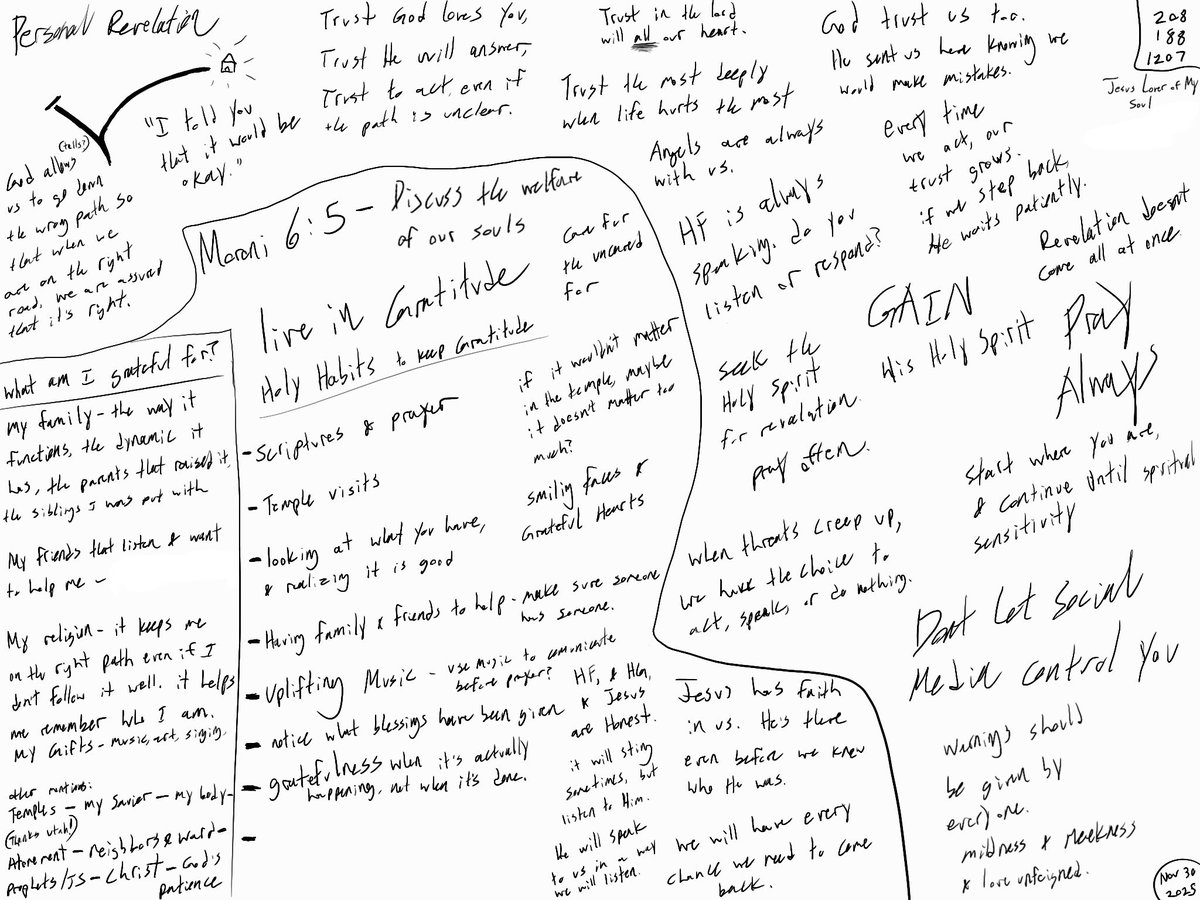 Personal Revelation
"I told you
that it would be
okay."
(tells?)
God allows
us to go down
the wrong path so
that when we
are on the right
road, we are assured
that it's right.
Trust God loves you,
Trust He will answer,
Trust to act, even if
the path is unclear.
Trust in the lord
will all our heart.
Trust the most deeply
when life hurts the most
Angels are always
with us.
HF is always
speaking. do you
listen or respond?
God trust us too.
He sent us here knowing we
would make mistakes.
every time
we act, our
trust grows.
if we step back,
He waits patiently.
208
188
1207
Jesus Lover of My
Soul
Revelation doesnt
come all at once.
GAIN
His Holy Spirit
Pray
Always
seek the
Holy Spirit
for revelation.
pray often.
Start where you are,
& continue until spiritual
sensitivity
when threats creep up,
we have the choice to
act, speak, or do nothing.
Dont Let Social
Media control you
warnings should
be given by
everyone.
mildness & meekness
& love unfeigned.
Nov 30
2025
Moroni 6:5 - Discuss the welfare
of our souls
Care for
the uncared
for
live in Gratitude
Holy Habits to keep Gratitude
- Scriptures & prayer
- Temple visits
- looking at what you have,
& realizing it is good
- Having family & friends to help - make sure someone
has someone.
- Uplifting Music - use music to comunicate
before prayer?
- notice what blessings have been given
- gratefulness when it's actually
happening, not when it's done.
-
if it wouldn't matter
in the temple, maybe
it doesn't matter too
much?
smiling faces &
Grateful Hearts
HF, & HG,
& Jesus
are Honest.
it will sting
sometimes, but
listen to Him.
He will speak
to us in a way
we will listen.
Jesus has faith
in us. He's there
even before we knew
who He was.
we will have every
chance we need to come
back.
what am I grateful for?
my family - the way it
functions, the dynamic it
has, the parents that raised it,
the siblings I was put with
My friends that listen & want
to help me -
My religion - it keeps me
on the right path even if I
don't follow it well. it helps
me remember who I am.
My Gifts - music, art, singing.
other mentions:
Temples - my Savior - my body -
(Thanks Utah!)
Atonement - neighbors & ward -
prophets/JS - Christ - God's
patience